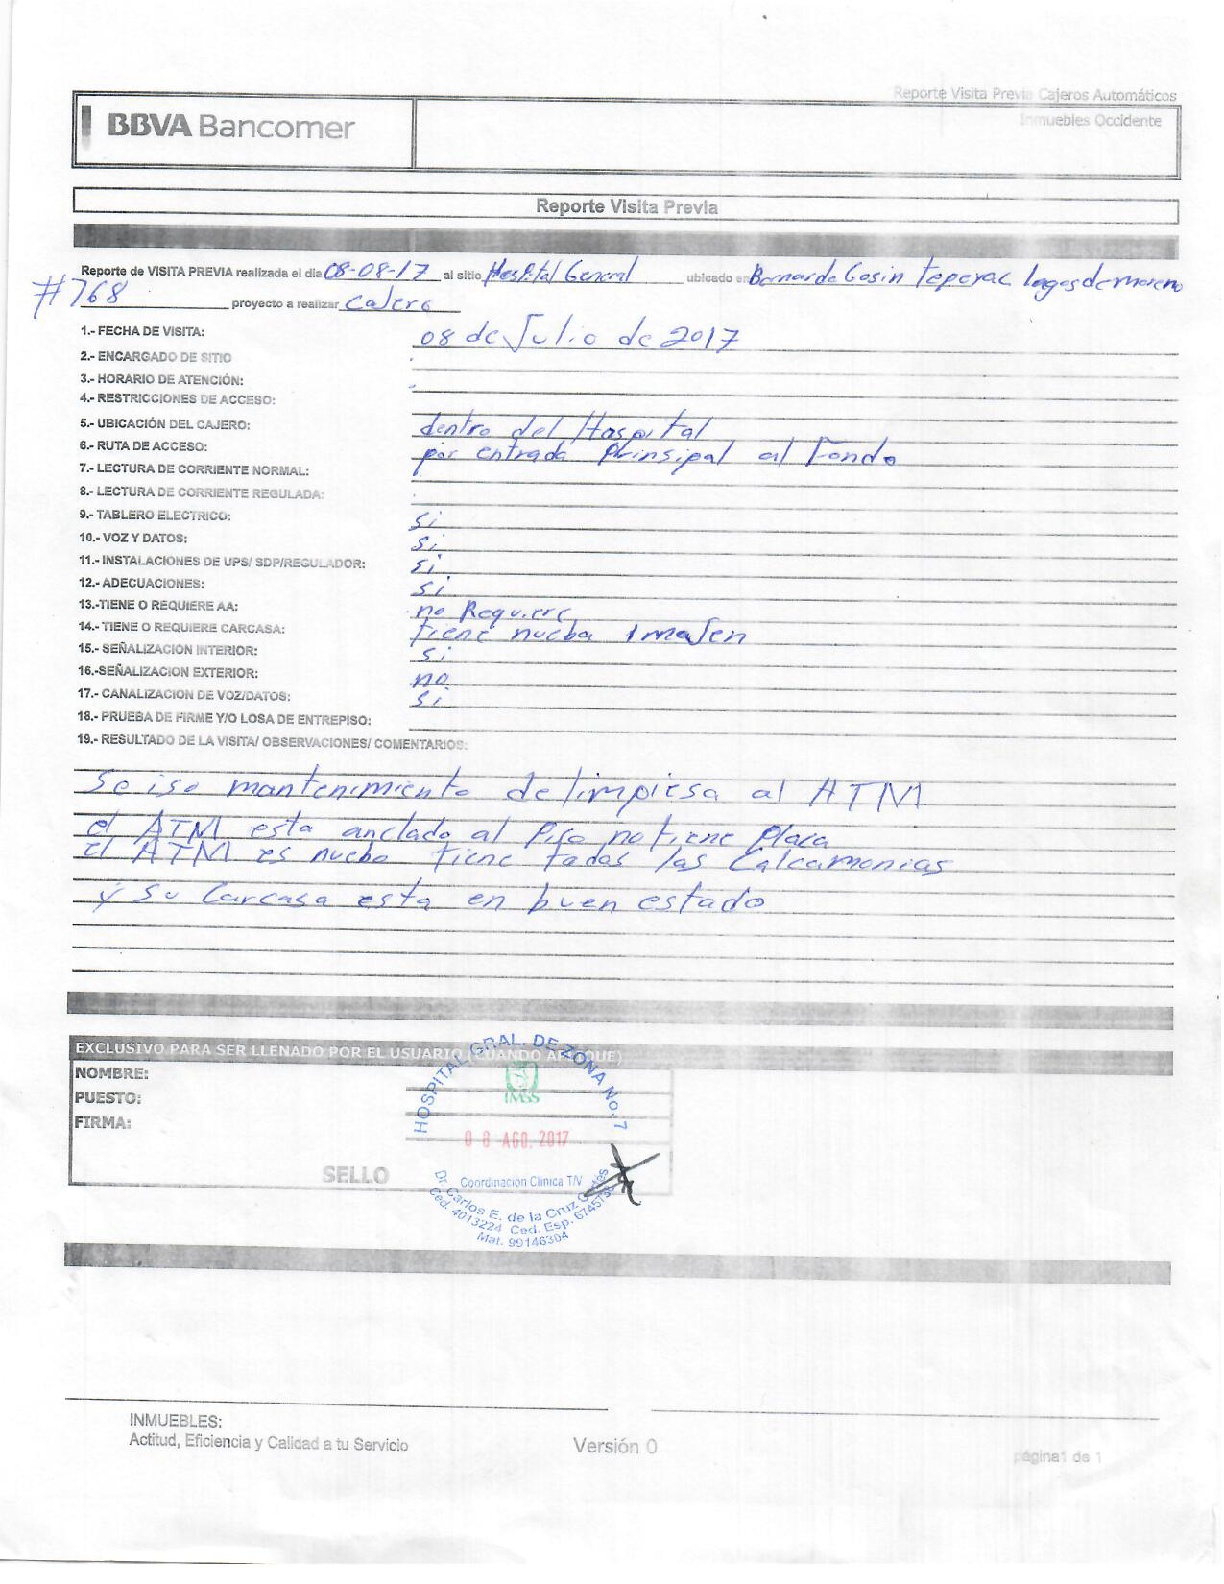 Reporte Visita Previa Cajeros Automáticos
BBVA Bancomer
Inmuebles Occidente
Reporte Visita Previa
Reporte de VISITA PREVIA realizada el dia 08-08-17 al sitio Hospital General ubicado en Bernardo Cosin Teperac lagos de moreno
#768 proyecto a realizar Cajero
1.- FECHA DE VISITA: 08 de Julio de 2017
2.- ENCARGADO DE SITIO
3.- HORARIO DE ATENCIÓN:
4.- RESTRICCIONES DE ACCESO:
5.- UBICACIÓN DEL CAJERO: dentro del Hospital
6.- RUTA DE ACCESO: por entrada Prinsipal al Fondo
7.- LECTURA DE CORRIENTE NORMAL:
8.- LECTURA DE CORRIENTE REGULADA:
9.- TABLERO ELECTRICO: si
10.- VOZ Y DATOS: si
11.- INSTALACIONES DE UPS/ SDP/REGULADOR: si
12.- ADECUACIONES: si
13.-TIENE O REQUIERE AA: no Requiere
14.- TIENE O REQUIERE CARCASA: tiene nueba imaJen
15.- SEÑALIZACION INTERIOR: si
16.-SEÑALIZACION EXTERIOR: no
17.- CANALIZACION DE VOZ/DATOS: si
18.- PRUEBA DE FIRME Y/O LOSA DE ENTREPISO:
19.- RESULTADO DE LA VISITA/ OBSERVACIONES/ COMENTARIOS:
Se iso mantenimiento de limpiesa al ATM
el ATM esta anclado al Piso no tiene Placa
el ATM es nuebo tiene todas las Calcamonias
y su Carcasa esta en buen estado
EXCLUSIVO PARA SER LLENADO POR EL USUARIO (CUANDO APLIQUE)
NOMBRE:
PUESTO:
FIRMA:
SELLO
HOSPITAL GRAL. DE ZONA No. 7
IMSS
08 AGO. 2017
Coordinación Clinica T/V
Dr. Carlos E. de la Cruz
Ced. 4013224 Ced. Esp.
Mat. 99146304
INMUEBLES:
Actitud, Eficiencia y Calidad a tu Servicio
Versión 0
página1 de 1